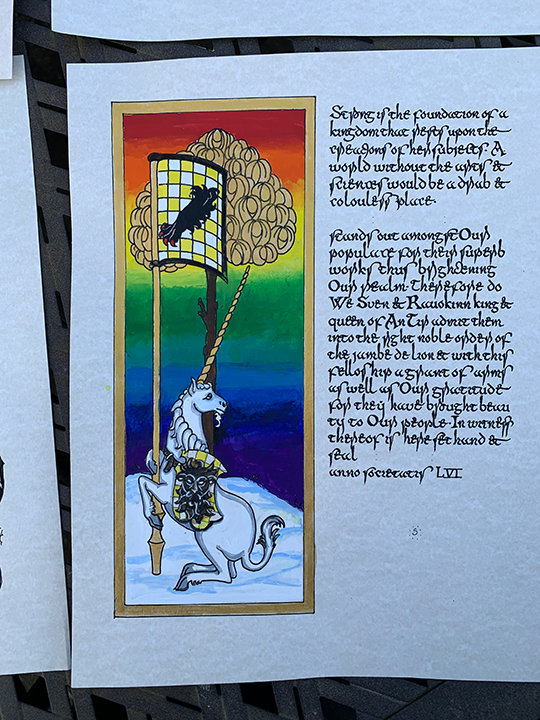 Strong is the foundation of a
kingdom that rests upon the
creations of her subjects. A
world without the arts &
sciences would be a drab &
colouless place.
stands out amongst Our
populace for their superb
works thus brightening
Our realm. Therefore do
We Sven & Rauokinn king &
queen of An Tir admit them
into the right noble order of
the jambe de lion & with this
fellowship a grant of arms
as well as Our gratitude
for they have brought beau
ty to Our people. In witness
thereof is here set hand &
seal
anno societatis LVI
S